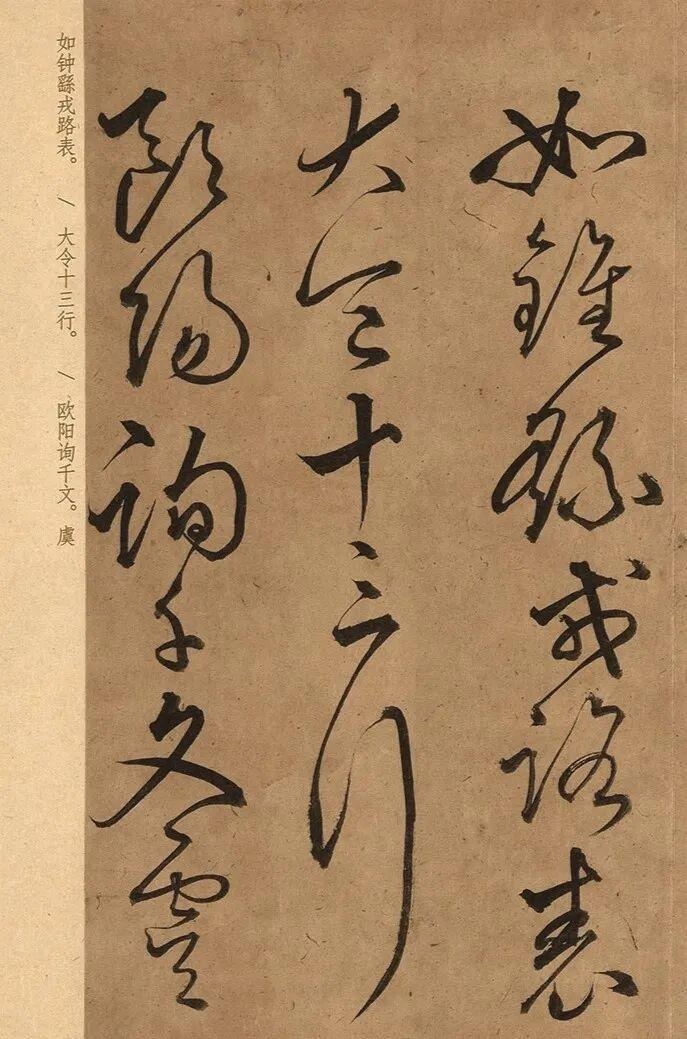 如鍾繇戎路表
大令十三行
歐陽詢千文虞
如钟繇戎路表。 \ 大令十三行。 \ 欧阳询千文。虞